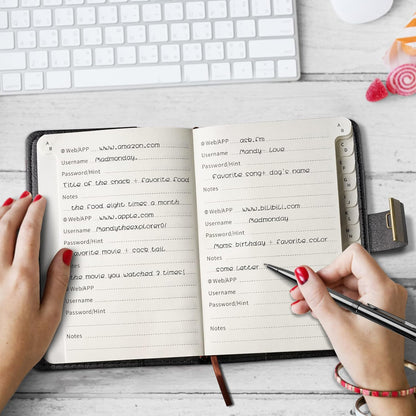 A
B
@ Web/APP www.amazon.com
Username Madmonday
Password/Hint
Title of the snack + favorite food
Notes
the food eight times a month
@ Web/APP www.apple.com
Username Mandytheexplorer01
Password/Hint
Favorite movie + cock tail
Notes
the movie you watched 3 times!
@ Web/APP
Username
Password/Hint
Notes
A
B
@ Web/APP ask.fm
Username Mandy Love
Password/Hint
favorite song+ dog's name
Notes
@ Web/APP www.bilibili.com
Username Madmonday
Password/Hint
Moms birthday + favorite color
Notes
some letter
@ Web/APP
Username
Password/Hint
Notes